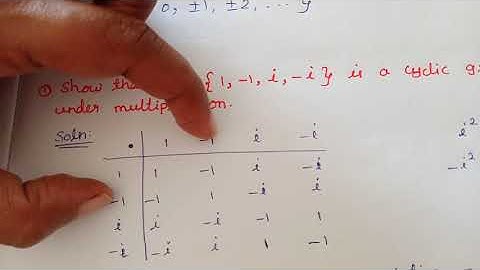 0, ±1, ±2, ... y
① Show tha { 1, -1, i, -i } is a cyclic g
under multip on.
Soln:
• 1 -1 i -i
1 1 -1 i -i
-1 -1 -i i
i i -i -1 1
-i -i i 1 -1
i²
-i²